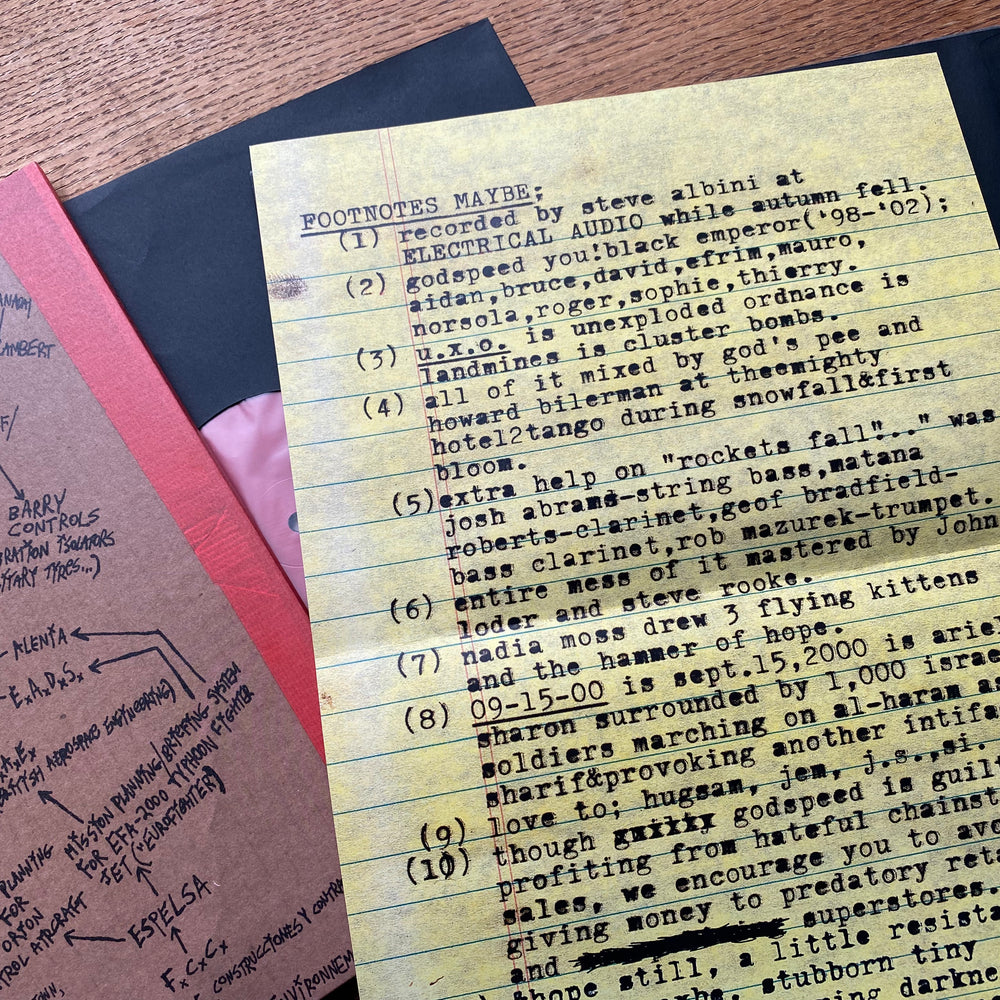 FOOTNOTES MAYBE;
(1) recorded by steve albini at
ELECTRICAL AUDIO while autumn fell.
(2) godspeed you!black emperor('98-'02);
aidan,bruce,david,efrim,mauro,
norsola,roger,sophie,thierry.
(3) u.x.o. is unexploded ordnance is
landmines is cluster bombs.
(4) all of it mixed by god's pee and
howard bilerman at theemighty
hotel2tango during snowfall&first
bloom.
(5)extra help on "rockets fall"..." was
josh abrams-string bass,matana
roberts-clarinet,geof bradfield-
bass clarinet,rob mazurek-trumpet.
(6) entire mess of it mastered by John
loder and steve rooke.
(7) nadia moss drew 3 flying kittens
and the hammer of hope.
(8) 09-15-00 is sept.15,2000 is arie
sharon surrounded by 1,000 israe
soldiers marching on al-haram as
sharif&provoking another intifa
(9) love to; hugsam, jem, j.s.,si.
(10) though guilty godspeed is guilt
profiting from hateful chainst
sales, we encourage you to avo
giving money to predatory reta
and superstores.
&hope still, a little resista
stubborn tiny
darkne
AMBERT
BARRY
CONTROLS
RATION ISOLATORS
ITARY TYPES...)
ALENIA
E.A.D.S.
A.E.
BRITISH AEROSPACE ENGINEERING)
MISSION PLANNING/BRIEFING SYSTEM
FOR EFA-2000 TYPHOON FIGHTER
JET ('EUROFIGHTER)
PLANNING
FOR
ORION
ROL AIRCRAFT
ESPELSA
F.C.C.
CONSTRUCCIONES Y CONTRA